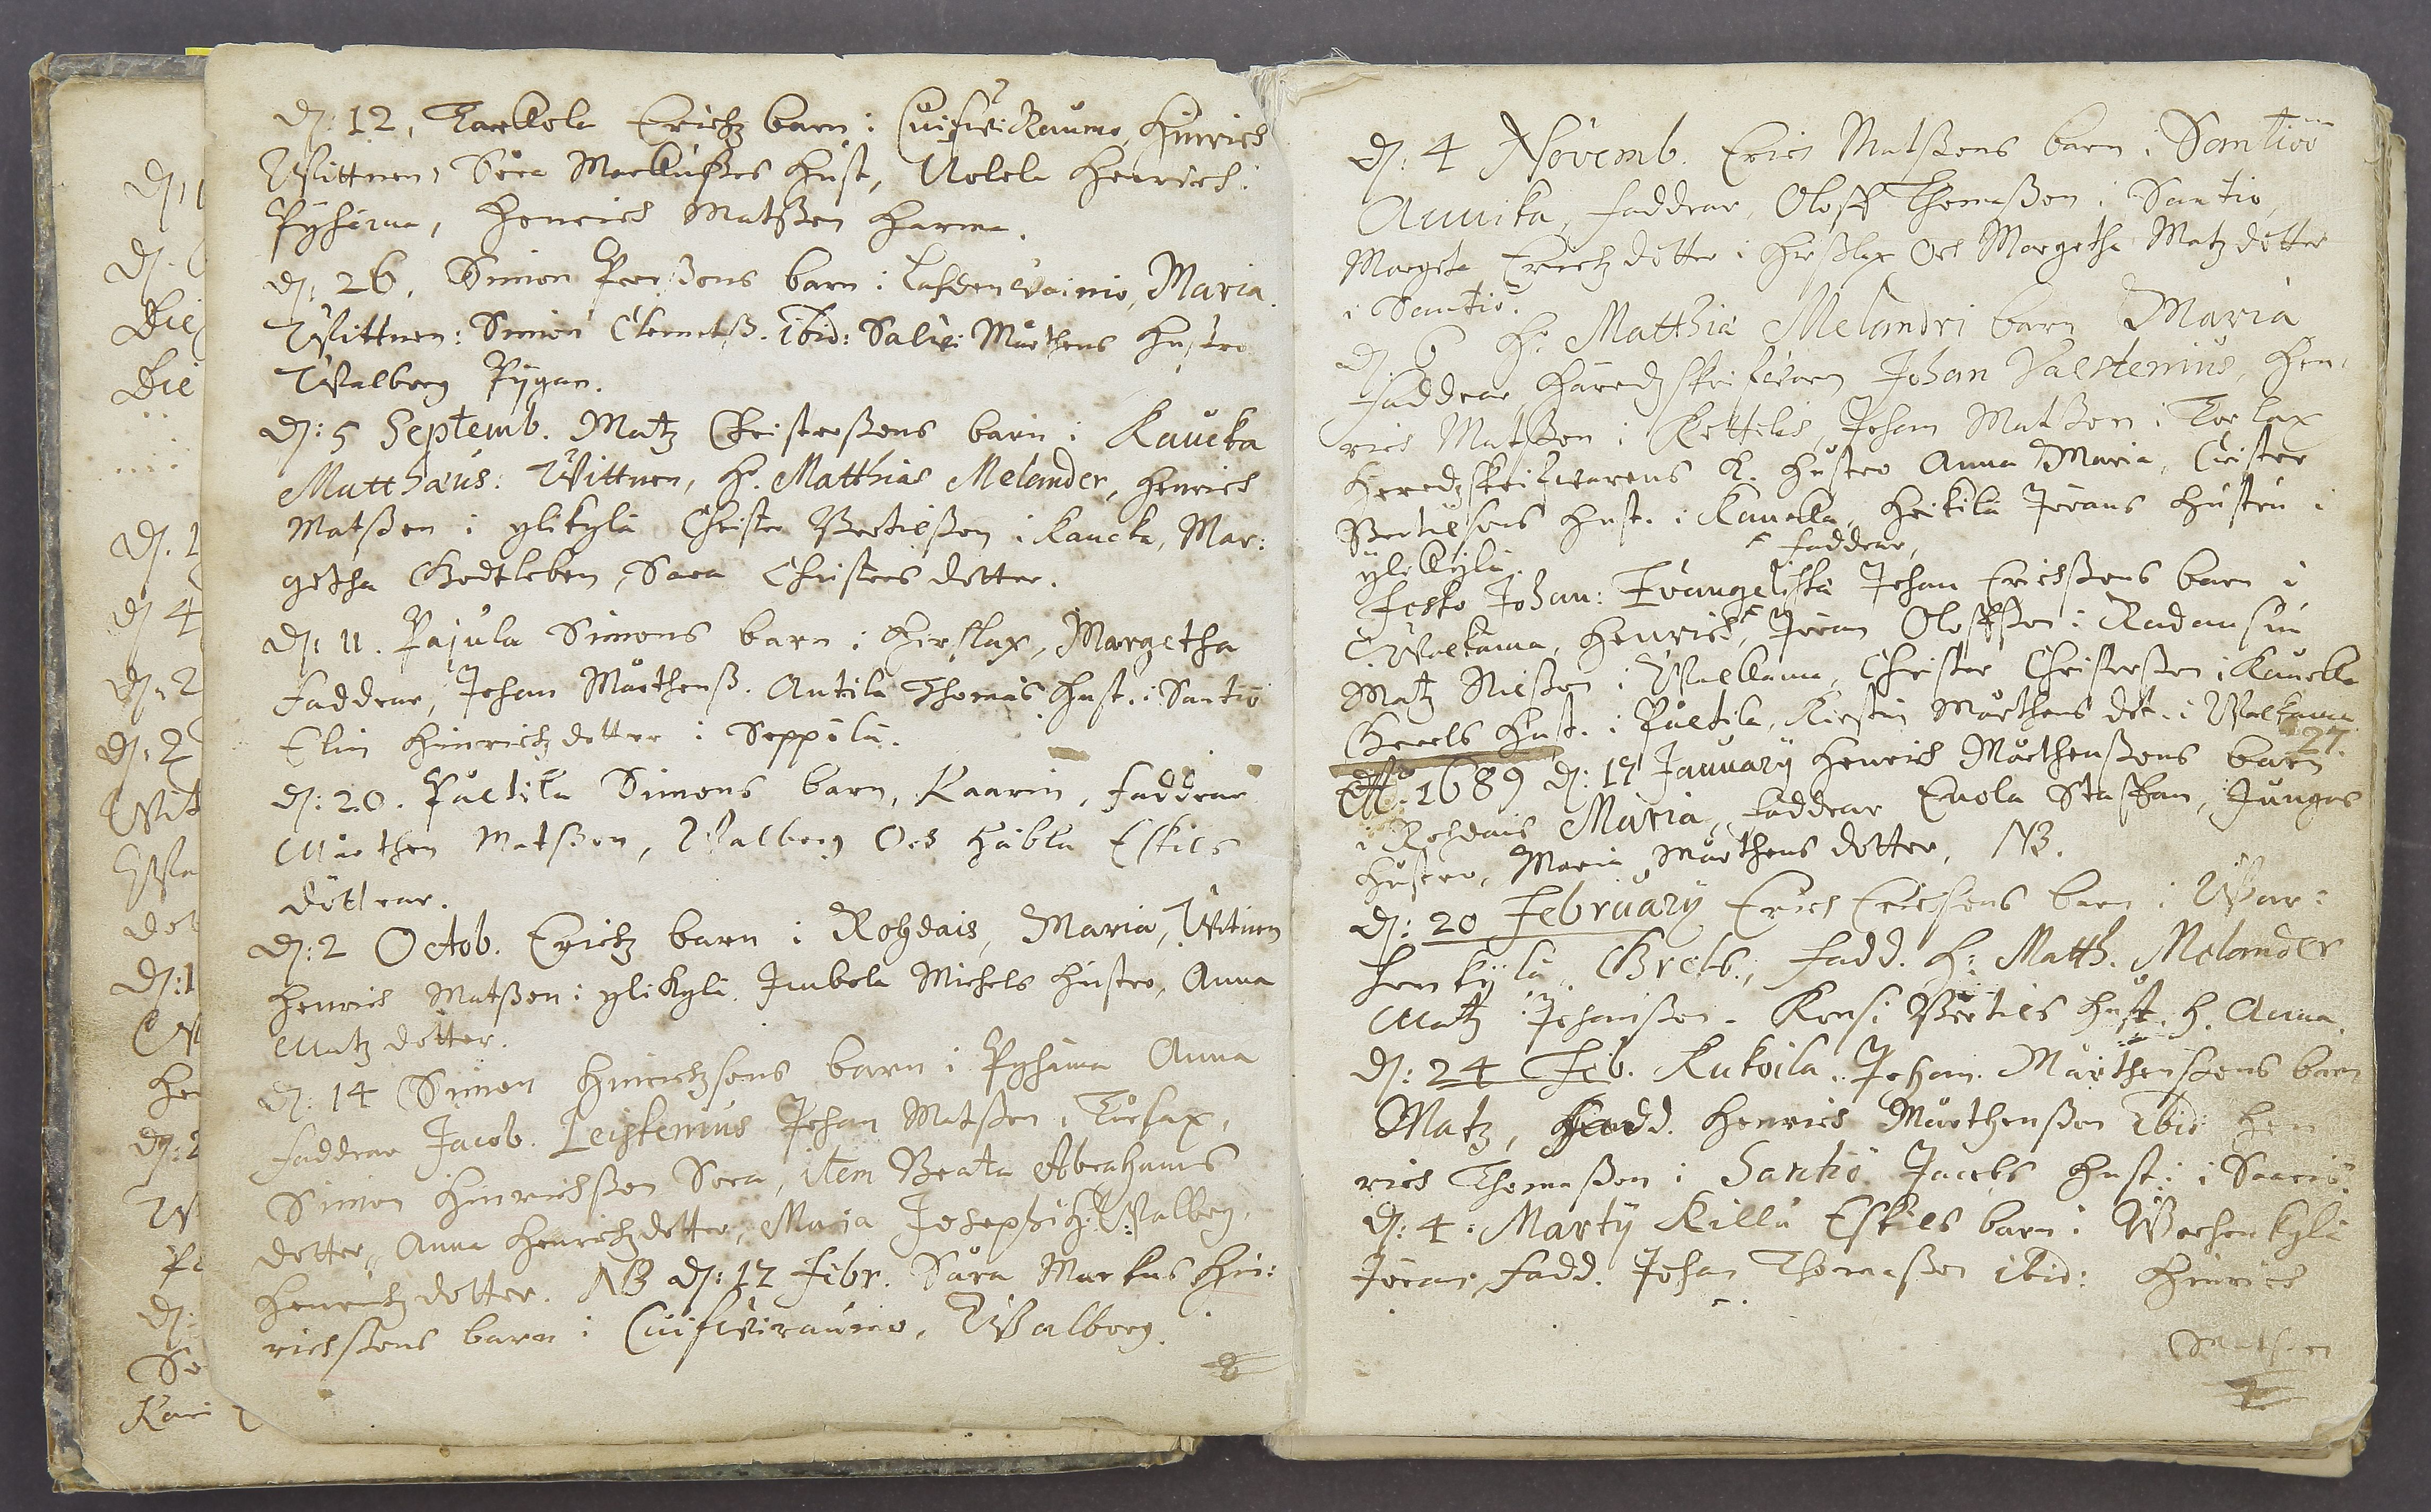 D: 12, Tarkola Erichz barn i Cuifwi Raumo, Hinrich
Wittnen, Sara Markusses hust, Uolela Henrich i
Pyhäma, Henrich Matßon Harma.
D: 26, Simon Peerßons barn i Lahdenwainio, Maria.
Wittnen: Simon Clemetß. ibid: Salwi Mårthens hustro
Walborg Pijgan.
D: 5 Septemb. Matz Christerßons barn i Kaucka
Matthæus: Wittnen, H. Matthias Melander, Henrich
Matßon i ylikylä Christer Bertilßon i Kaucka, Mar:
getha Godtleben, Sara Christers dotter.
D: 11. Pajula Simons barn i Hirslax, Margetha
faddrar, Johan Mårthenß. Antila Thomas hust. i Santio
Elin Hinrichz dotter i Seppälä.
D: 20. Pueltila Simons barn, Kaarin, faddrar
Mårthen Matsson, Walborg och Häbla Eskils
döttrar.
D: 2 Octob. Erichz barn i Rohdais, Maria, Witnen
Henrich Matßon i ylikylä. Imbola Michels hustro, Anna
Matz dotter.
D: 14 Simon Hinrichzsons barn i Pyhäma Anna
faddrar Jacob. Leistenius Johan Matßon i Torlax,
Simon Hinrichßon Sora, item Beata Abrahams
dotter, Anna Henrichzdotter, Maria Josephi H. Walborg
Henrichz dotter. NB D: 12 Febr. Sara Markus Hin:
richssons barn i Cuifwiraumo, Walborg.
D: 4 Novemb. Erich Matßons barn i Santioo
Annika, faddrar, Oloff Thomaßon i Santio,
Margeta Erichz dotter i Hirßlax och Margetha Matz dotter
i Santio.
D. 6 H. Matthiæ Melandri barn Maria
Faddrar Häredzskrifwaren Johan Palstenius, Hen,
rich Matßon i Kettelis, Johan Matßon i Torlax
Heredzskrifwarens K. hustro Anna Maria, Christer
Bertilsons hust. i Kaucka, Heikilä Jörans hustru i
ylikylä.
faddrar,
Festo Johan: Evangelistæ Johan Erichßons barn i
Walkama, Henrich, Jöran Oloffson i Radansuu
Matz Nilßon i Walkama, Christer Christerßon i Kaucka
Greels hust. i Pueltila, Kirstin Mårthens dot. i Walkama
27.
Aº. 1689 D: 17 January Henrich Mårthenßons barn
i Rohdais Maria, faddrar Euola Staffan, Jungas
hustro, Maria Mårthens dotter, NB.
D: 20 February Erich Erichsons barn i War:
henkylä, Greta., Fadd. H: Matth. Melander
Matz Johanßon. Kensi Bertils hust. h. Anna.
D: 24 Feb. Kukoila. Johan Mårthensßons barn
Matz, Fadd. Henrich Mårthenßon ibid: Hen
rich Thomaßon i Santio Jacobs hust: i Saario.
D: 4. Martij Killä Eskils barn i Werhenkylä
Jöran, Fadd. Johan Thomaßon ibid: Hinrich
Matsson